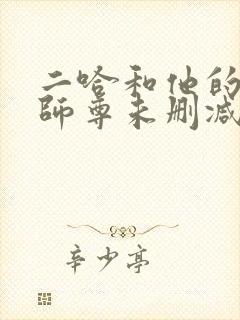 二哈和他的
師尊未删减
辛少亭